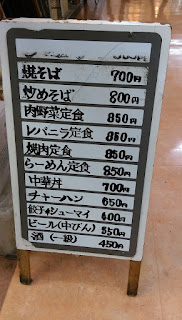 焼そば 700円
炒めそば 800円
肉野菜定食 850円
レバニラ定食 850円
焼肉定食 850円
らーめん定食 850円
中華丼 700円
チャーハン 650円
餃子・シューマイ 400円
ビール(中びん) 550円
酒(一級) 450円